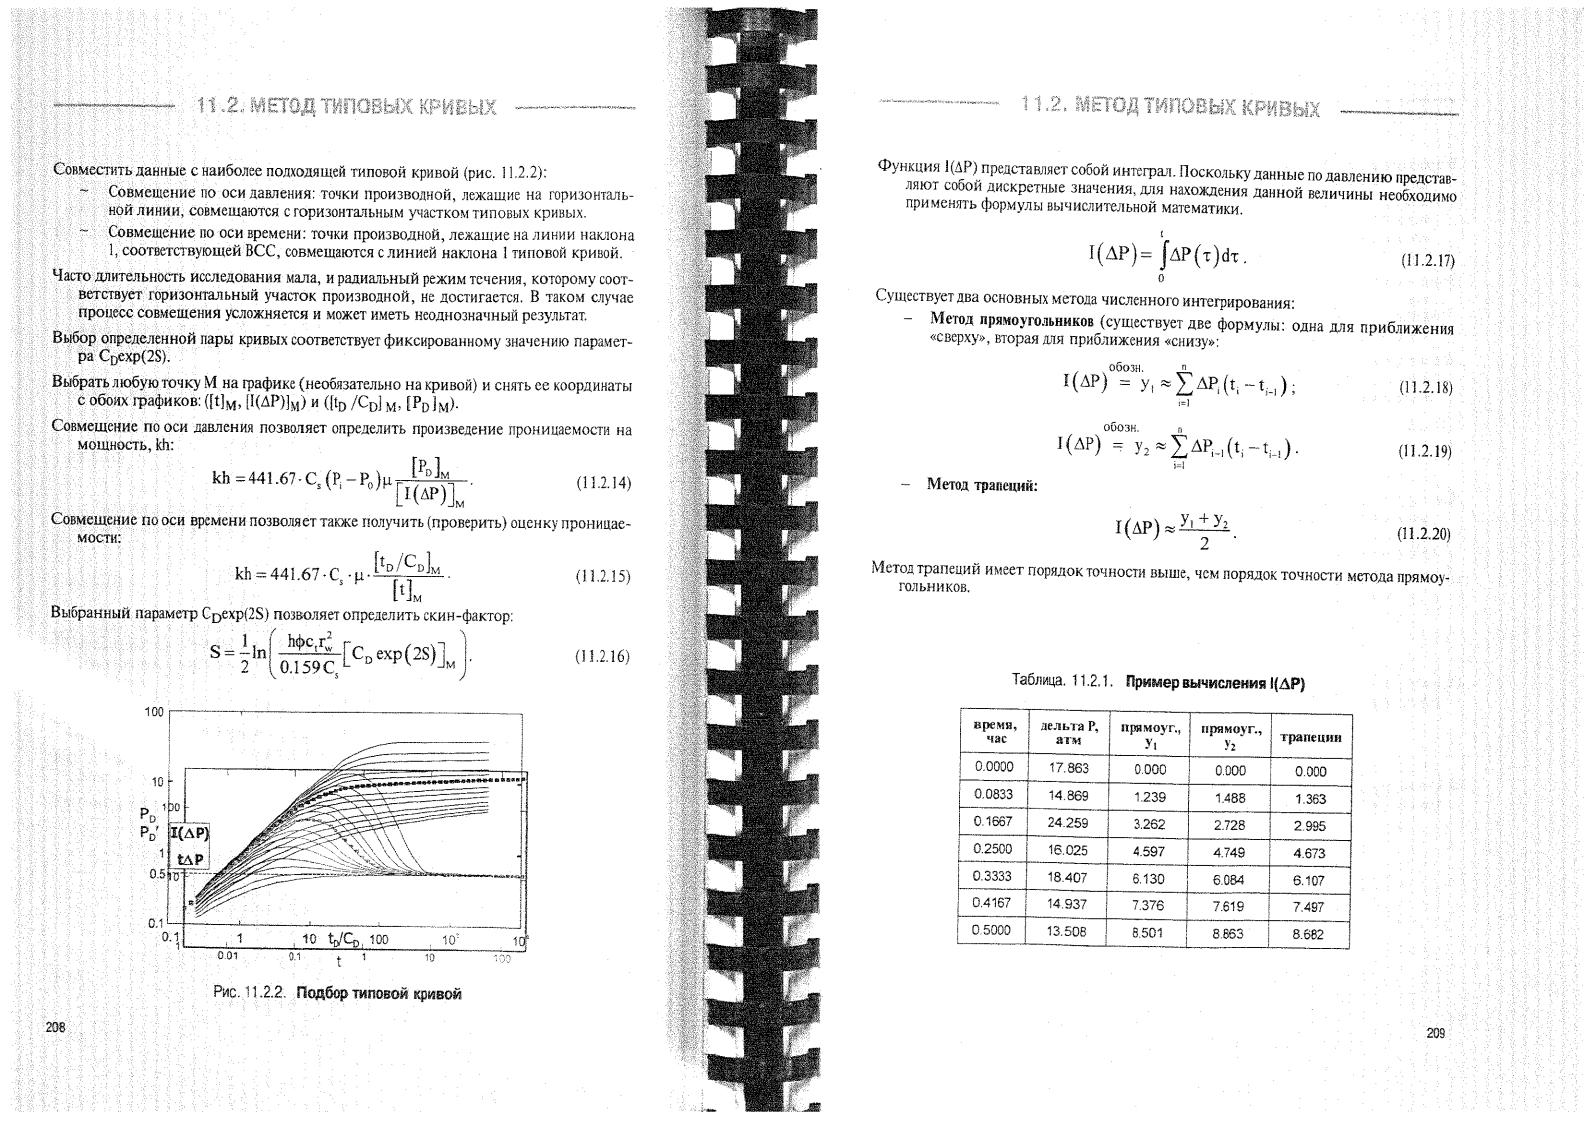 11.2. МЕТОД ТИПОВЫХ КРИВЫХ
Совместить данные с наиболее подходящей типовой кривой (рис. 11.2.2):
– Совмещение по оси давления: точки производной, лежащие на горизонталь-
ной линии, совмещаются с горизонтальным участком типовых кривых.
– Совмещение по оси времени: точки производной, лежащие на линии наклона
1, соответствующей ВСС, совмещаются с линией наклона 1 типовой кривой.
Часто длительность исследования мала, и радиальный режим течения, которому соот-
ветствует горизонтальный участок производной, не достигается. В таком случае
процесс совмещения усложняется и может иметь неоднозначный результат.
Выбор определенной пары кривых соответствует фиксированному значению парамет-
ра C_Dexp(2S).
Выбрать любую точку М на графике (необязательно на кривой) и снять ее координаты
с обоих графиков: ([t]_M, [I(ΔP)]_M) и ([t_D /C_D]_M, [P_D]_M).
Совмещение по оси давления позволяет определить произведение проницаемости на
мощность, kh:
kh = 441.67 · C_s (P_i – P_0)μ [P_D]_M / [I(ΔP)]_M . (11.2.14)
Совмещение по оси времени позволяет также получить (проверить) оценку проницае-
мости:
kh = 441.67 · C_s · μ · [t_D/C_D]_M / [t]_M . (11.2.15)
Выбранный параметр C_Dexp(2S) позволяет определить скин-фактор:
S = 1/2 ln( hφc_t r_w^2 / 0.159C_s [C_D exp(2S)]_M ). (11.2.16)
100
10
P_D
P_D'
1
0.5
0.1
100
I(ΔP)
tΔP
10
0.1
1
10
t_D/C_D
100
1
0.01
0.1
t
1
10
100
Рис. 11.2.2. Подбор типовой кривой
208
11.2. МЕТОД ТИПОВЫХ КРИВЫХ
Функция I(ΔP) представляет собой интеграл. Поскольку данные по давлению представ-
ляют собой дискретные значения, для нахождения данной величины необходимо
применять формулы вычислительной математики.
I(ΔP) = ∫_0^t ΔP(τ)dτ . (11.2.17)
Существует два основных метода численного интегрирования:
– Метод прямоугольников (существует две формулы: одна для приближения
«сверху», вторая для приближения «снизу»:
обозн.
I(ΔP) = y_1 ≈ Σ_{i=1}^n ΔP_i (t_i – t_{i–1}) ; (11.2.18)
обозн.
I(ΔP) = y_2 ≈ Σ_{i=1}^n ΔP_{i–1} (t_i – t_{i–1}) . (11.2.19)
– Метод трапеций:
I(ΔP) ≈ (y_1 + y_2) / 2 . (11.2.20)
Метод трапеций имеет порядок точности выше, чем порядок точности метода прямоу-
гольников.
Таблица. 11.2.1. Пример вычисления I(ΔP)
время, час дельта P, атм прямоуг., y_1 прямоуг., y_2 трапеции
0.0000 17.863 0.000 0.000 0.000
0.0833 14.869 1.239 1.488 1.363
0.1667 24.259 3.262 2.728 2.995
0.2500 16.025 4.597 4.749 4.673
0.3333 18.407 6.130 6.084 6.107
0.4167 14.937 7.376 7.619 7.497
0.5000 13.508 8.501 8.863 8.682
209